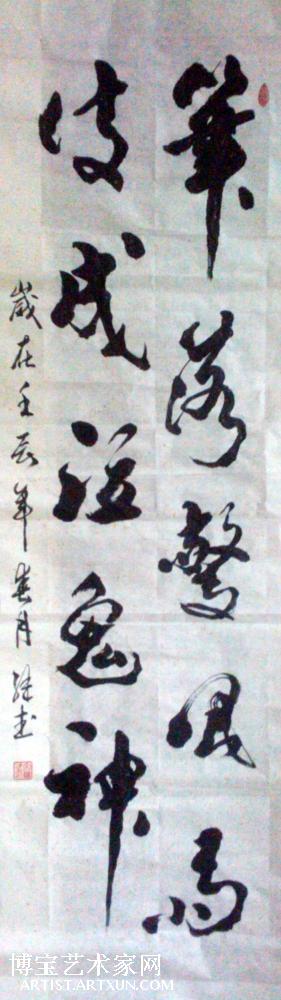 筆落驚風雨
詩成泣鬼神
歲在壬辰年春月
博宝艺术家网
ARTIST.ARTXUN.COM